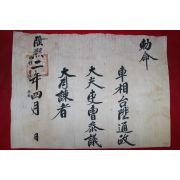 勅命
車相台陞通政
大夫吏曹參議
大者
隆熙二年四月 日